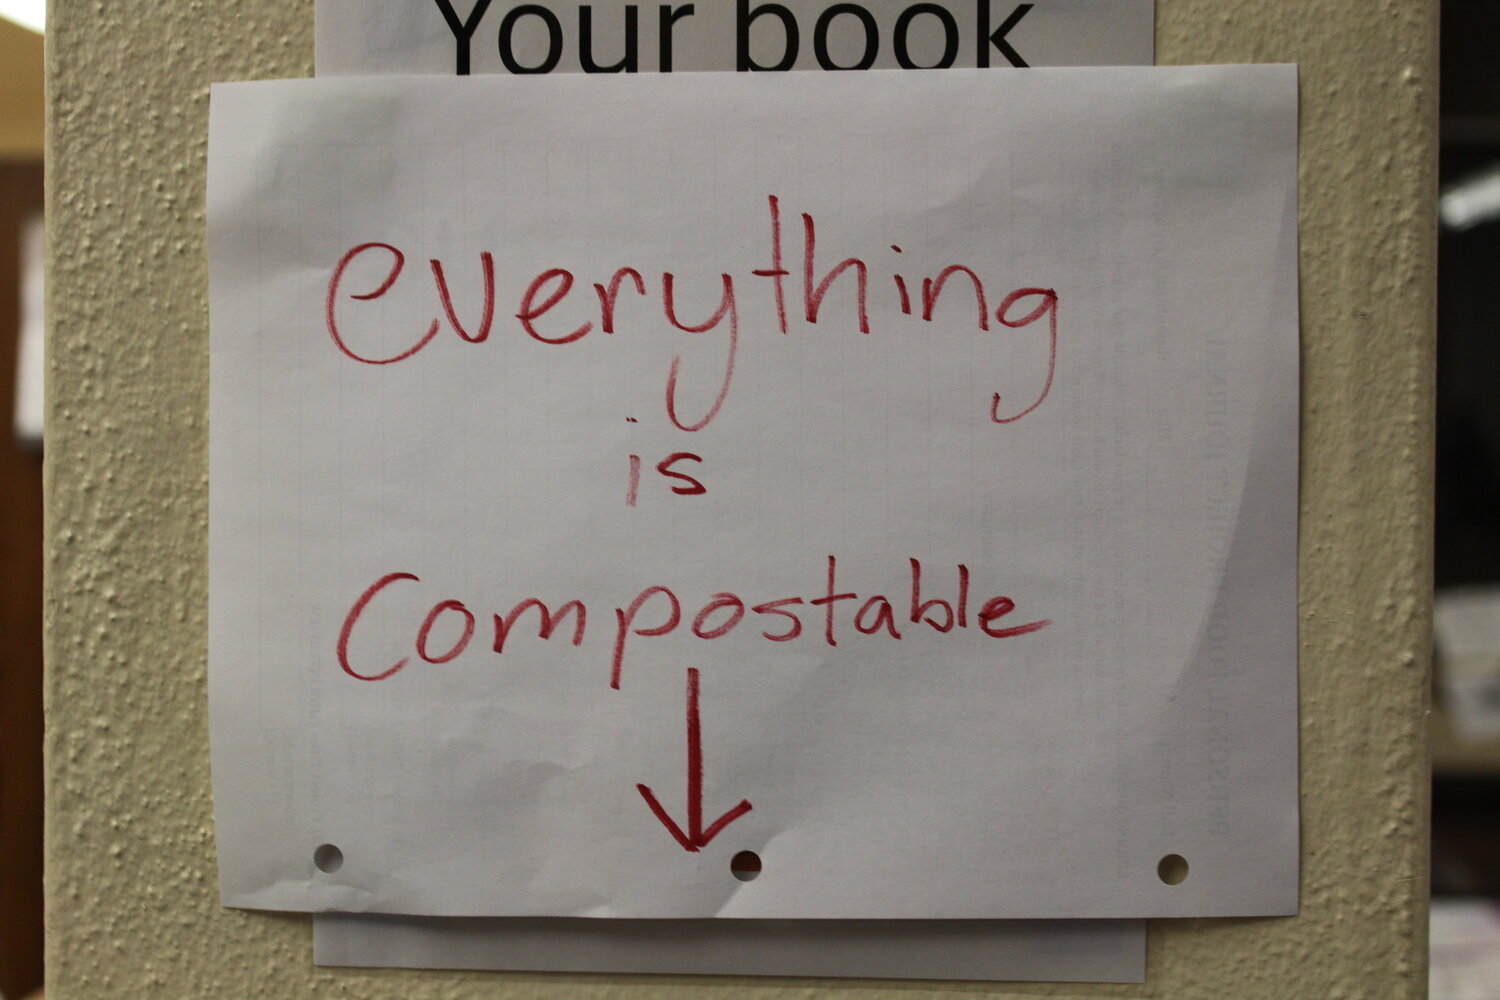 Your book
everything
is
compostable